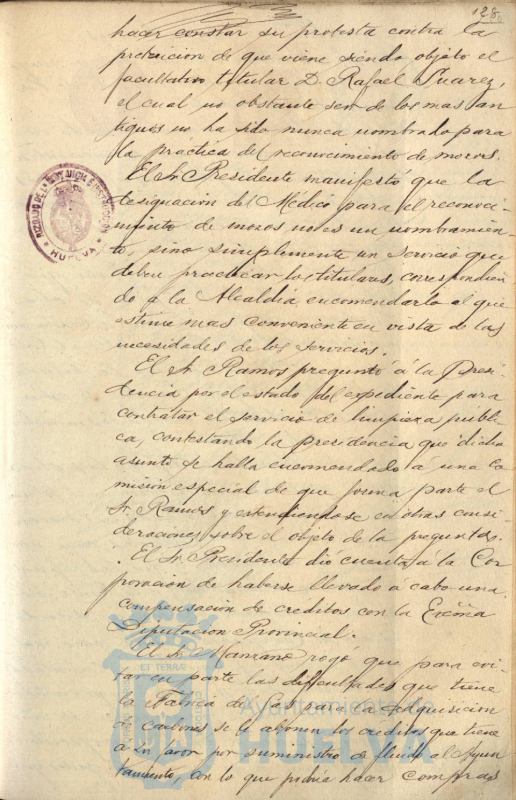 128
hacer constar su protesta contra la
preterición de que viene siendo objeto el
facultativo titular D. Rafael Suarez,
el cual no obstante ser de los mas an
tiguos no ha sido nunca nombrado para
la practica del reconocimiento de mozos.
El Sr Presidente manifestó que la
designación del Médico para el reconoci
miento de mozos no es un nombramien
to, sino simplemente un servicio que
deben practicar los titulares, correspondien
do a la Alcaldia encomendarlo al que
estime mas conveniente en vista de las
necesidades de los servicios.
El Sr Ramos preguntó á la Presi
dencia por el estado del expediente para
contratar el servicio de limpieza públi
ca, contestando la presidencia que dicho
asunto se halla encomendado á una co
misión especial de que forma parte el
Sr. Ramos y extendiendose en otras consi
deraciones sobre el objeto de la pregunta.
El Sr. Presidente dió cuenta á la Cor
poración de haberse llevado á cabo una
compensación de créditos con la Excma
Diputacion Provincial.
El Sr. Manzano rogó que para evi
tar en parte las dificultades que tiene
la Fabrica de Gas para la adquisicion
de carbones se le abonen los creditos que tiene
a su favor por suministro de fluido al Ayun
tamiento, con lo que podria hacer compras
HUELVA
ET TERRÆ
Ayuntamiento
HUELVA